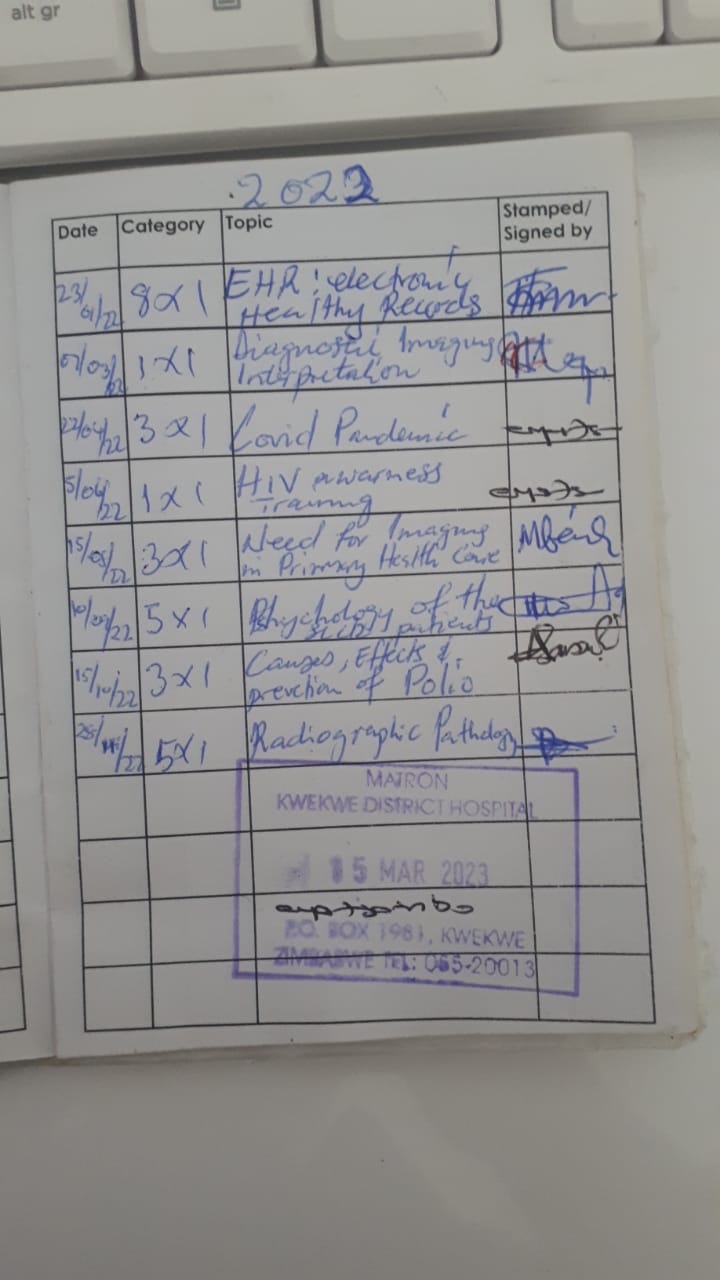 alt gr
2022
Date Category Topic Stamped/
Signed by
23/01/22 8x1 EHR: electronic
Healthy Records
1x1 Diagnostic Imaging
Interpretation
22/04/22 3x1 Covid Pandemic
5/04/22 1x1 HIV awarness
Training
15/05/22 3x1 Need for Imaging
in Primary Health Care
5x1 Phychology of the
patients
15/10/22 3x1 Causes, Effects &
prevction of Polio
5x1 Radiographic Pathology
MATRON
KWEKWE DISTRICT HOSPITAL
15 MAR 2023
P.O. BOX 1981, KWEKWE
ZIMBABWE TEL: 055-20013